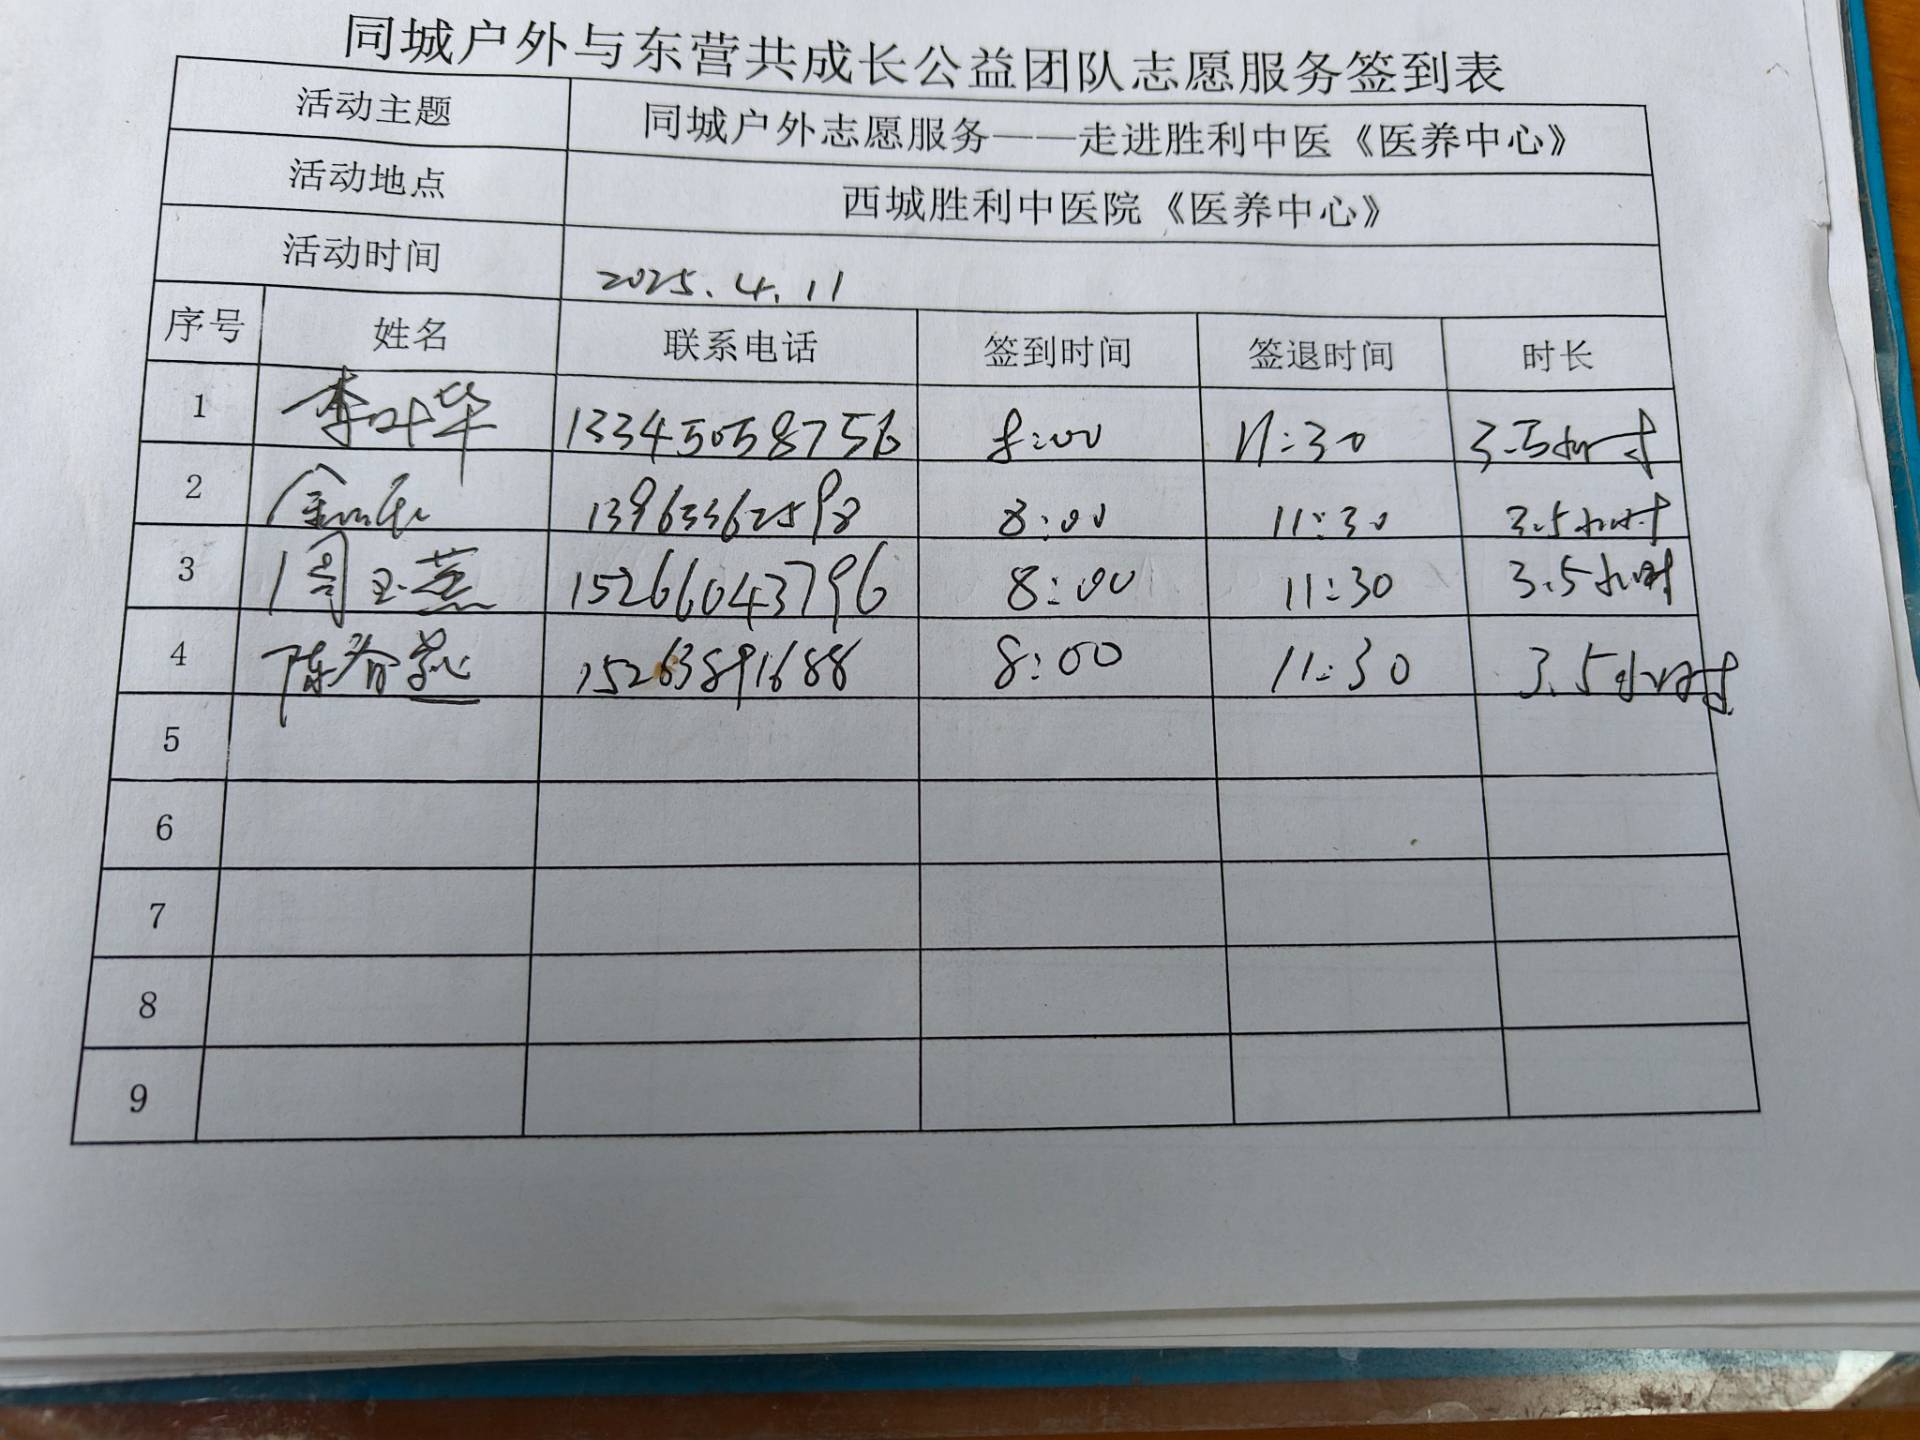 同城户外与东营共成长公益团队志愿服务签到表
活动主题 同城户外志愿服务——走进胜利中医《医养中心》
活动地点 西城胜利中医院《医养中心》
活动时间 2025.4.11
序号 姓名 联系电话 签到时间 签退时间 时长
1 李叶华 13345058756 8:00 11:30 3.5小时
2 13963362598 8:00 11:30 3.5小时
3 周玉燕 15266043796 8:00 11:30 3.5小时
4 陈 15263891688 8:00 11:30 3.5小时
5
6
7
8
9